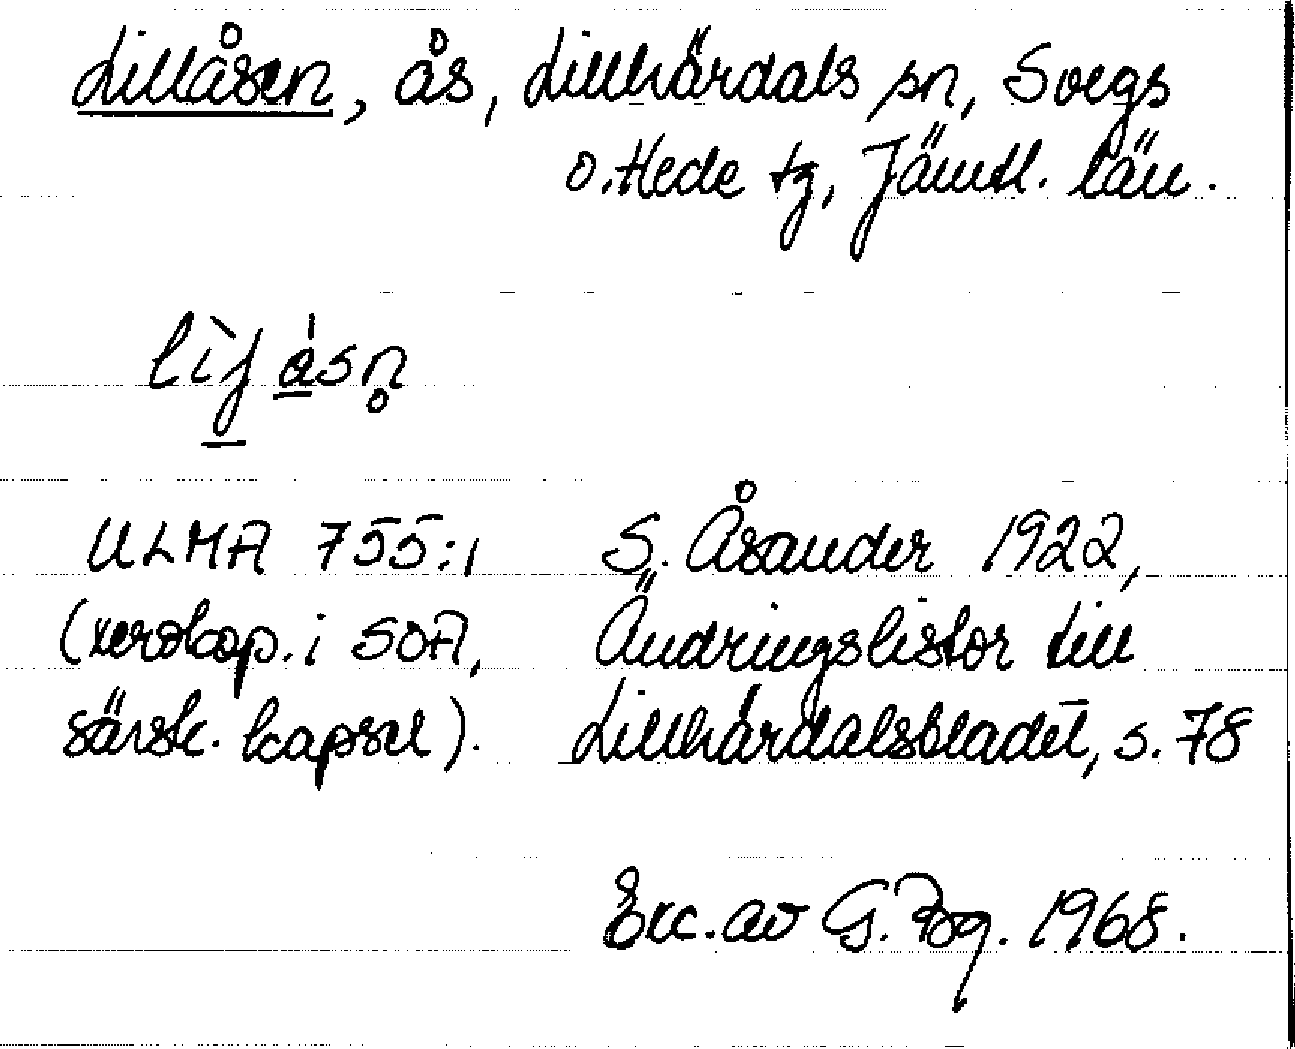 Lillåsen, ås, Lillhärdals sn, Svegs
o. Hede tg, Jämtl. län.
ULMA 755:1 S. Åsander 1922,
(xerokop. i SOA, Ändringslistor till
särsk. kapsel). Lillhärdalsbladet, s. 78
Exc. av G. 1968.